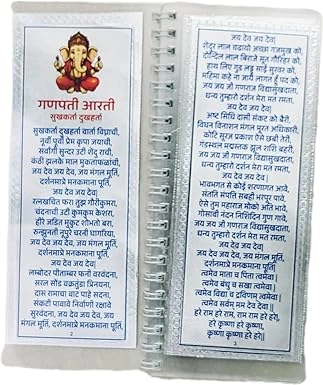 गणपती आरती
सुखकर्ता दुखहर्ता
सुखकर्ता दुखहर्ता वार्ता विघ्नाची,
नुर्वी पुर्वी प्रेम कृपा जयाची,
सर्वांगी सुन्दर उटी शेंदु राची,
कंठी झलके माल मुकताफळांची,
जय देव जय देव, जय मंगल मूर्ति,
दर्शनमात्रे मनकमाना पूर्ति,
जय देव जय देव
रत्नखचित फरा तुझ गौरीकुमरा,
चंदनाची उटी कुमकुम केशरा,
हीरे जडित मुकुट शोभतो बरा,
रुन्झुनती नूपुरे चरनी घागरिया,
जय देव जय देव, जय मंगल मूर्ति,
दर्शनमात्रे मनकमाना पूर्ति,
जय देव जय देव|
लम्बोदर पीताम्बर फनी वरवंदना,
सरल सोंड वक्रतुंडा त्रिनयना,
दास रामाचा वाट पाहे सदना,
संकटी पावावे निर्वाणी रक्षावे
सुरवंदना, जय देव जय देव, जय
मंगल मूर्ति, दर्शनमात्रे मनकमाना पूर्ति,
2
जय देव जय देव|
शेंदुर लाल चढायो अच्छा गजमुख को,
दोन्दिल लाल बिराजे सूत गौरिहर को,
हाथ लिए गुड लड्डू साई सुरवर को,
महिमा कहे ना जाय लागत हूँ पद को,
जय जय जी गणराज विद्यासुखदाता,
धन्य तुम्हारो दर्शन मेरा मत रमता,
जय देव जय देव|
अष्ट सिधि दासी संकट को बैरी,
विघन विनाशन मंगल मूरत अधिकारी,
कोटि सूरज प्रकाश ऐसे छबी तेरी,
गंडस्थल मद्मस्तक झूल शशि बहरी,
जय जय जी गणराज विद्यासुखदाता,
धन्य तुम्हारो दर्शन मेरा मत रमता,
जय देव जय देव|
भावभगत से कोई शरणागत आवे,
संतति संपत्ति सबही भरपूर पावे,
ऐसे तुम महाराज मोको अति भावे,
गोसावी नंदन निशिदिन गुण गावे,
जय जय जी गणराज विद्यासुखदाता,
धन्य तुम्हारो दर्शन मेरा मत रमता,
जय देव जय देव|
जय देव जय देव, जय मंगल मूर्ति,
दर्शनमात्रे मनकमाना पूर्ति,
जय देव जय देव|
त्वमेव माता च पिता त्वमेव|
त्वमेव बंधु च सखा त्वमेव|
त्वमेव विद्या च द्रविणम् त्वमेव |
त्वमेव सर्वम मम देव देव||
हरे राम हरे राम, राम राम हरे हरे,
हरे कृष्णा हरे कृष्णा,
कृष्णा कृष्णा हरे हरे||
3